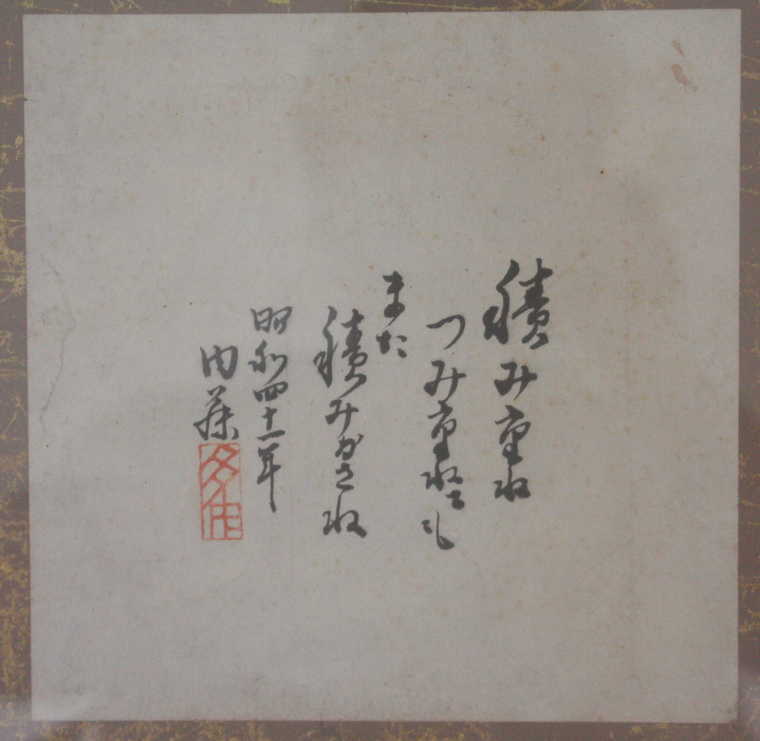 積み重ね
つみ重ねても
また
積みかさね
昭和四十一年
内藤
多仲